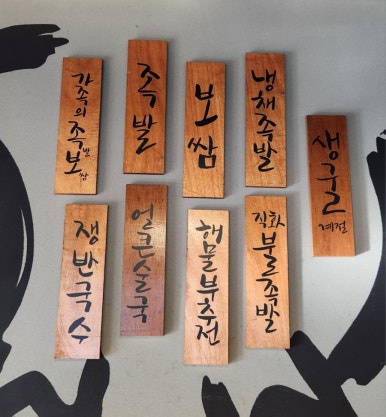 가족의족발보쌈
족발
보쌈
냉채족발
생굴 계절
쟁반국수
얼큰술국
해물부추전
직화불족발